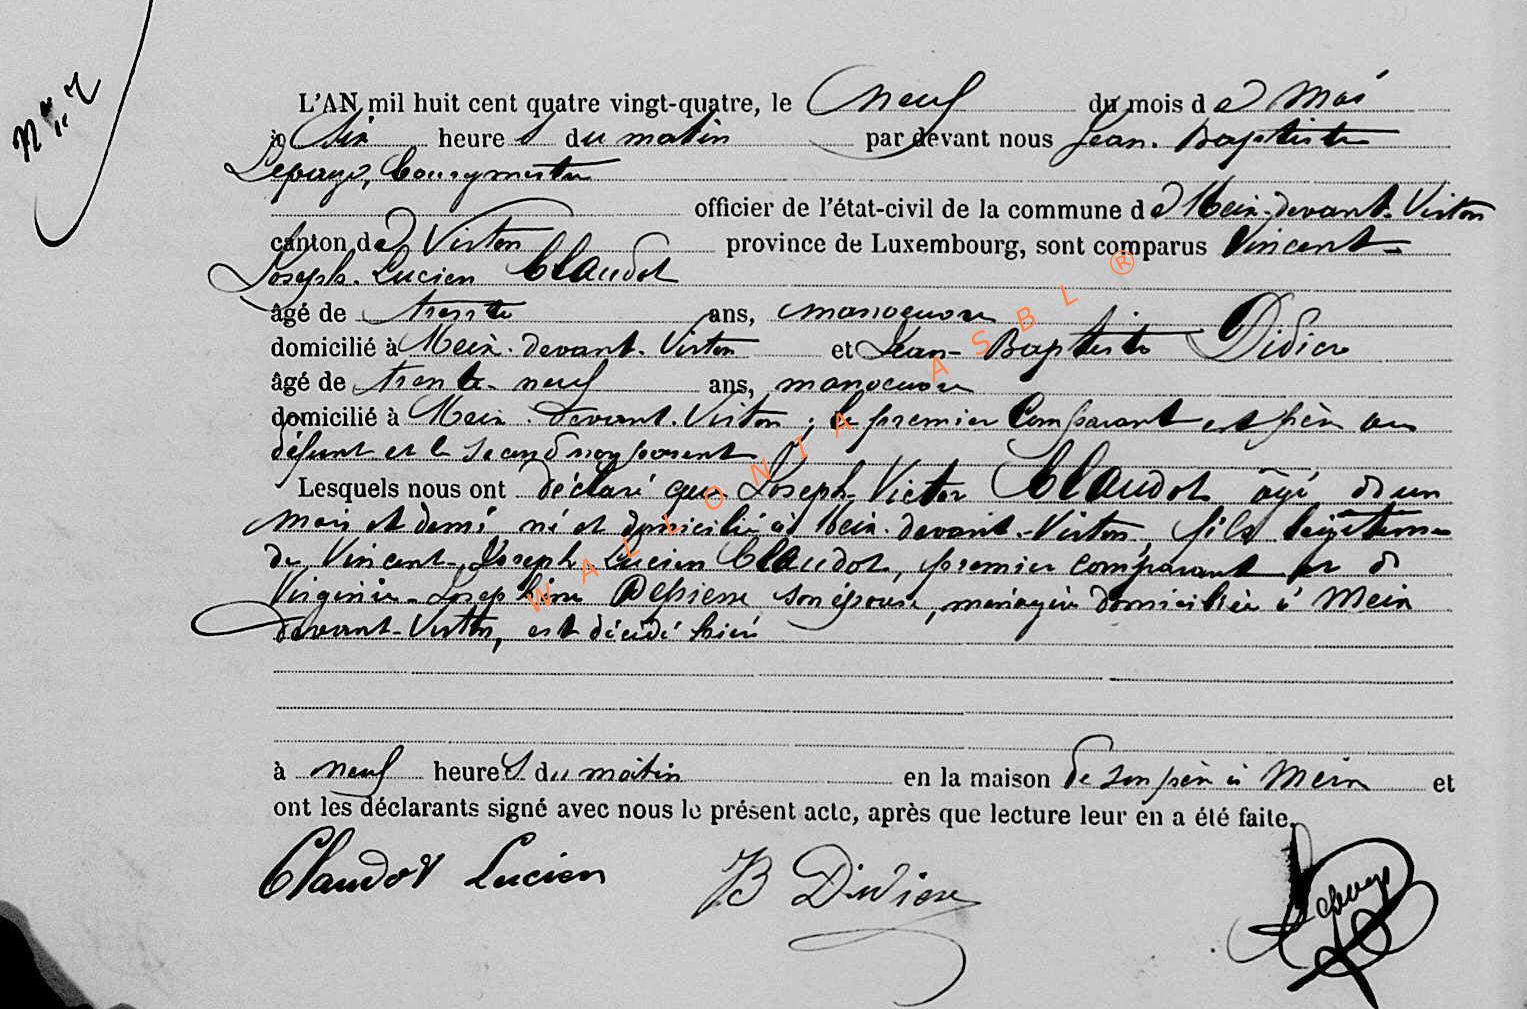 N° 12
L'AN mil huit cent quatre vingt-quatre, le neuf du mois de Mai
à dix heures du matin par devant nous Jean-Baptiste
Lepage, bourgmestre
officier de l'état-civil de la commune de Meix-devant-Virton
canton de Virton province de Luxembourg, sont comparus Vincent-
Joseph-Lucien Claudot
âgé de trente ans, manoeuvre
domicilié à Meix-devant-Virton et Jean-Baptiste Didier
âgé de trente-neuf ans, manoeuvre
domicilié à Meix-devant-Virton ; le premier comparant est père au
défunt et le second non parent
Lesquels nous ont déclaré que Joseph-Victor Claudot âgé d'un
mois et demi né et domicilié à Meix-devant-Virton, fils légitime
de Vincent-Joseph-Lucien Claudot, premier comparant et de
Virginie-Josephine son épouse, ménagère domiciliée à Meix
devant-Virton, est décédé hier
à neuf heures du matin en la maison de son père à Meix et
ont les déclarants signé avec nous le présent acte, après que lecture leur en a été faite.
Claudot Lucien JB Didier Lepage
WALLONIA ASBL ®